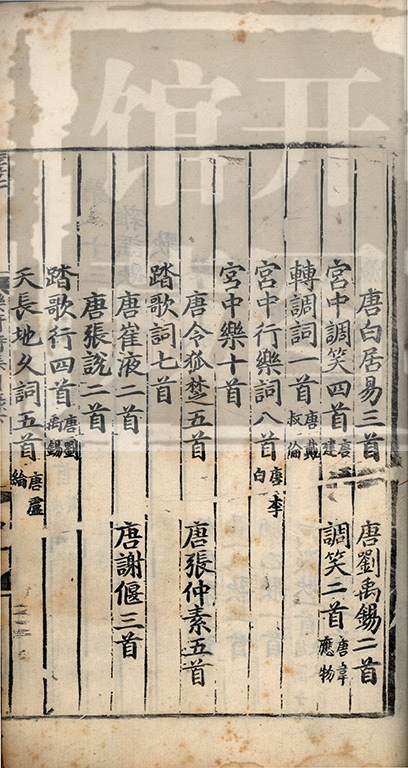 唐白居易三首 唐劉禹錫二首
宮中調笑四首 唐王建 調笑二首 唐韋應物
轉調詞一首 唐戴叔倫
宮中行樂詞八首 唐李白
宮中樂十首
唐令狐楚五首 唐張仲素五首
踏歌詞七首
唐崔液二首 唐謝偃三首
唐張說二首
踏歌行四首 唐劉禹錫
天長地久詞五首 唐盧綸